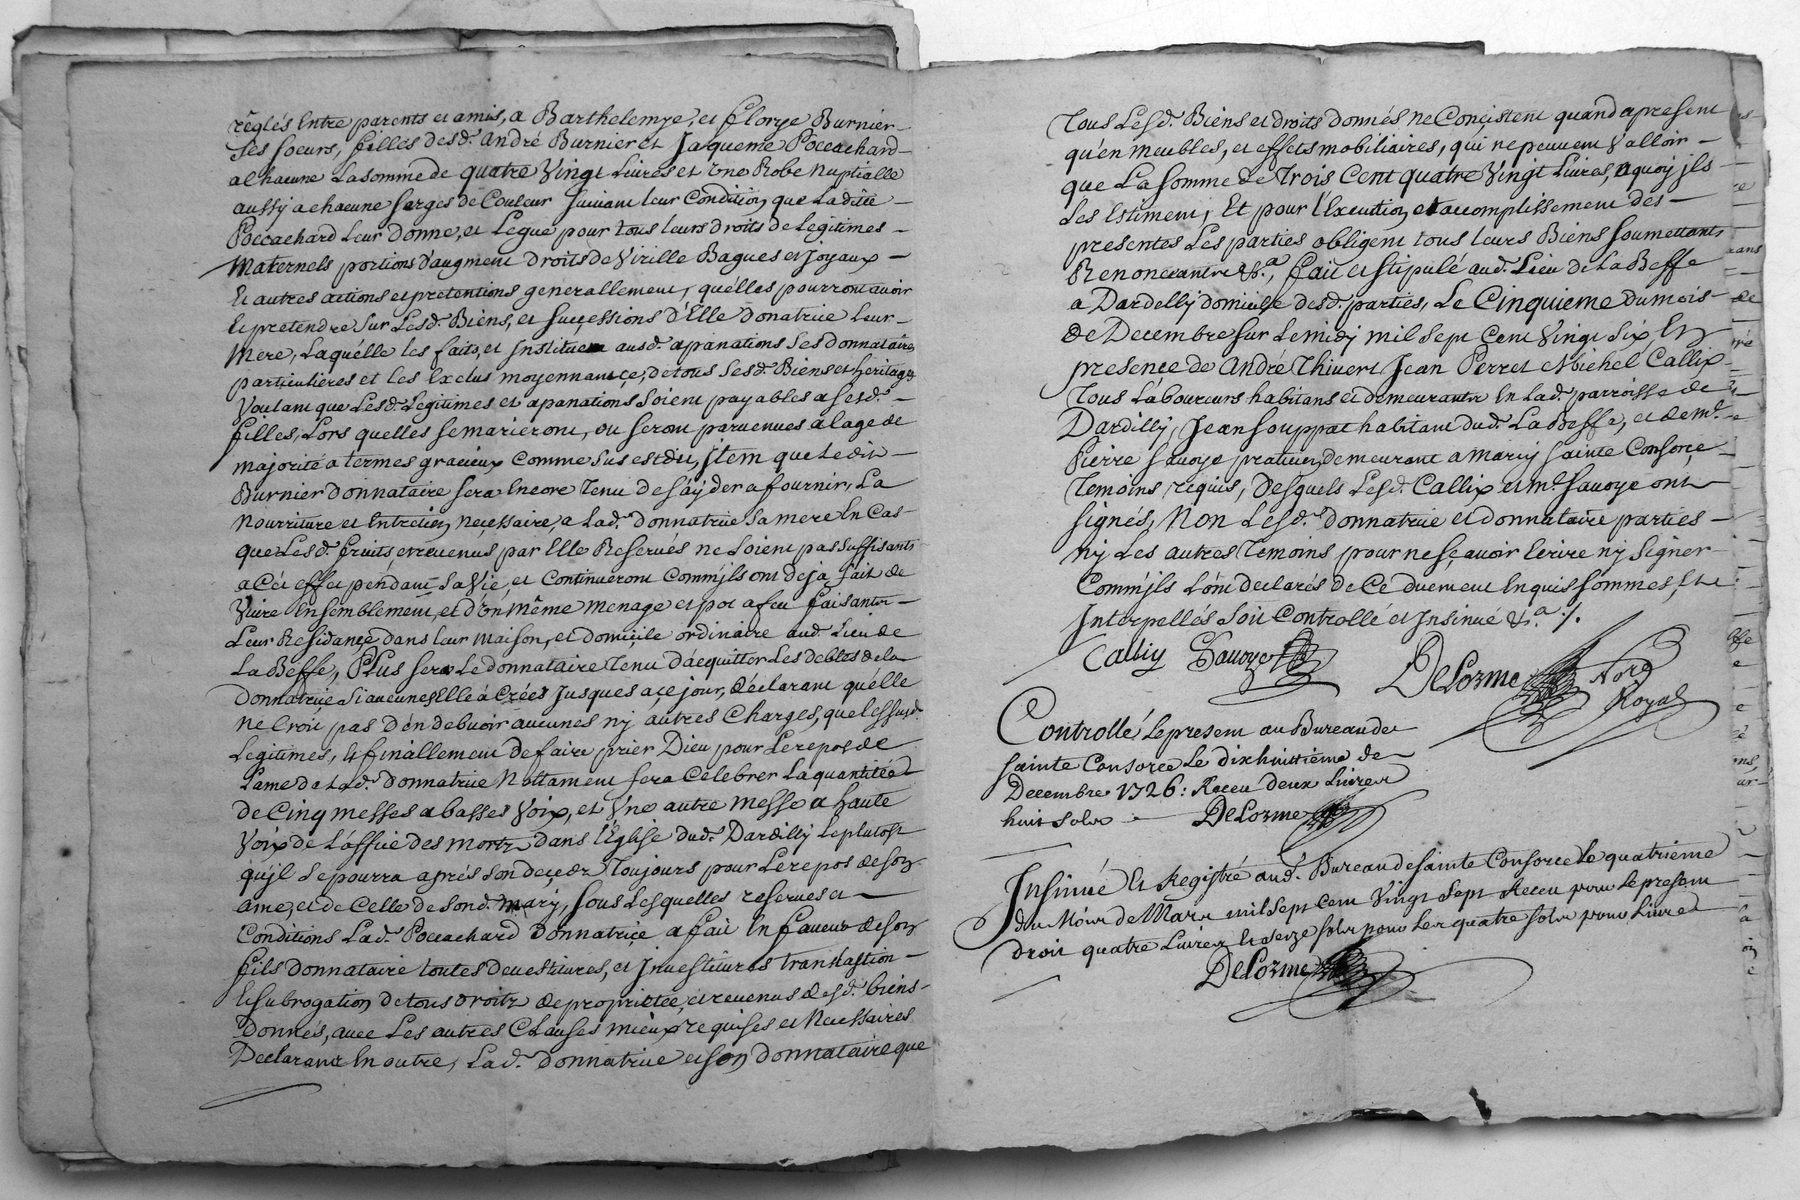 réglés Entre parents et amis, a Barthelemye, et Florye Burnier
Ses soeurs, filles desd. André Burnier et Jaqueme Poccachard
a chacune La somme de quatre Vingt Livres et Une Robe Nuptialle
aussy a chacune serges de Couleur suivant leur Condition, que La ditte
Poccachard leur donne, et Legue pour tous leurs droits de Legitimes
Maternels portions d'augment droits de Virille Bagues et joyaux
Et autres actions et pretentions generallement, quelles pourront avoir
Et pretendre sur Lesd. Biens, et successions d'Elle donatrice Leur
Mere, Laquélle les faits, et Instituem ausd. apanations Ses donnataires
particulieres et les Exclus moyennant çe, de tous Sesd. Biens et heritages
Voulant que Lesd. Legitimes et apanations soient payables a sesd.
filles, Lors quelles se marieront, ou seront parvenues a lage de
majorité a termes gracieux comme sus est dit, jtem que Le dit
Burnier donnataire sera Encore tenu de s'ayder a fournir, La
nourriture et Entretien neçessaire, a Lad. donnatrice Sa mere En Cas
que Lesd. fruits et revenus par Elle Reservés ne soient pas suffisants
a Cét effet pendant sa Vie, et Continueront Comm'jls ont deja fait de
Vivre Ensemblement, et d'un même menage et pot a feu faisants
Leur Residançe dans Leur maison, et domiçile ordinaire aud. Lieu de
La Beffe, Plus sera Le donnataire tenu d'acquitter Les debtes de la
Donnatriçe si aucunes Elle à Créés jusques a çe jour, déclarant qu'élle
ne Croit pas d'en debvoir aucunes ny autres Charges, que les susd.
Legitimes, Et finallement de faire prier Dieu pour Le repos de
l'ame de Lad. Donnatrice Nottament fera Célebrer La quantitée
de Cinq messes a basses Voix, et Une autre messe a haute
Voix de L'offiçe des morts dans l'Église dud. Dardilly Le plutost
qujl se pourra aprés son deçedz Toujours pour Le repos de son
ame, et de Celle de Sond. mary, sous Lesquelles reserves et
Conditions Lad. Poccachard Donnatriçe a fait En faveur de son
fils donnataire toutes devestitures, et Jnvestitures translation
Et subrogation, de tous droits de proprietée, et revenus desd. biens
Donnés, avec Les autres Clauses mieux requises et Necessaires
Declarant En outre, Lad. donnatrice et son donnataire que
Tous Lesd. Biens et droits donnés ne Conçistent quand a present
qu'en meubles, et effets mobiliaires, qui ne peuvent Valloir
que La somme de Trois Cent quatre Vingt Livres, a quoy jls
Les Estiment, Et pour l'Execution, et accomplissement des
presentes Les parties obligent tous leurs Biens soumettants
Renoncants &c.a, fait et stipulé aud. Lieu de La Beffe
a Dardilly domicile desd. parties, Le Cinquieme du mois
de Decembre sur Le midy mil sept Cent Vingt Six, En
presence de André Thivert Jean Perret Michel Callix
Tous Laboureurs habitans et demeurants En Lad. parroisse de
Dardilly, Jean Souppat habitant dud. La Beffe, et de me.
Pierre Savoye praticien, demeurant a Marcy Sainte Consorçe
Temoins requis, Desquels Lesd. Callix et me. Savoye ont
signés, Non Lesd. donnatrice et donnataire parties
ny Les autres temoins pour ne sçavoir Ecrire ny signer
Comm'jls L'ont declarés de Ce duement Enquis sommes, Et
Interpellés Soit Controllé et Insinué &.a /.
Callix Savoye DeLorme Nore
Royal
Controllé Le present au Bureau de
sainte Consorce Le dixhuittieme de
Decembre 1726: Receu deux Livres
huit sols DeLorme
Insinué Et Registré aud. Bureau de sainte Consorce Le quatrieme
du Mois de Mars mil sept Cent Vingt sept Receu pour Le present
droit quatre Livres Et seize sols pour Les quatre sols pour Livre
DeLorme